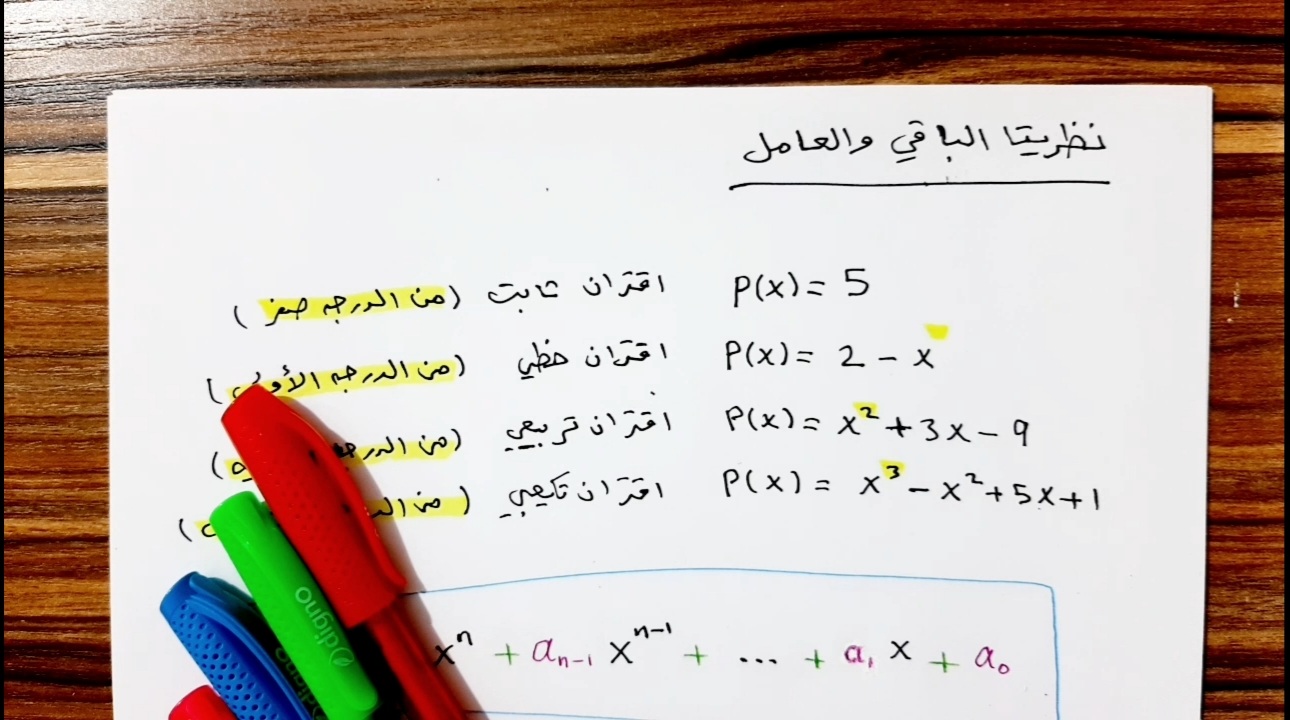 نظريتا الباقي والعامل
P(x) = 5 اقتران ثابت (من الدرجه صفر)
P(x) = 2 - x اقتران خطي (من الدرجه الأولى)
P(x) = x² + 3x - 9 اقتران تربيعي (من
P(x) = x³ - x² + 5x + 1 اقتران تكعيبي (من
xⁿ + aₙ₋₁ xⁿ⁻¹ + ... + a₁ x + a₀
digno
digno